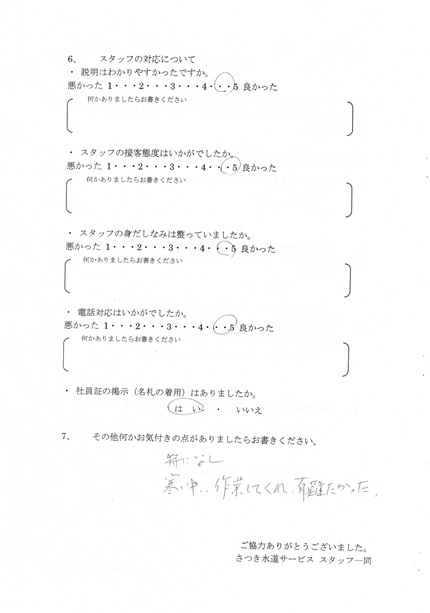 6、 スタッフの対応について
・ 説明はわかりやすかったですか。
悪かった 1・・・2・・・3・・・4・・・5 良かった
何かありましたらお書きください
・ スタッフの接客態度はいかがでしたか。
悪かった 1・・・2・・・3・・・4・・・5 良かった
何かありましたらお書きください
・ スタッフの身だしなみは整っていましたか。
悪かった 1・・・2・・・3・・・4・・・5 良かった
何かありましたらお書きください
・ 電話対応はいかがでしたか。
悪かった 1・・・2・・・3・・・4・・・5 良かった
何かありましたらお書きください
・ 社員証の掲示（名札の着用）はありましたか。
はい ・ いいえ
7、 その他何かお気付きの点がありましたらお書きください。
特になし
寒い中、作業してくれ、有難たかった。
ご協力ありがとうございました。
さつき水道サービス スタッフ一同